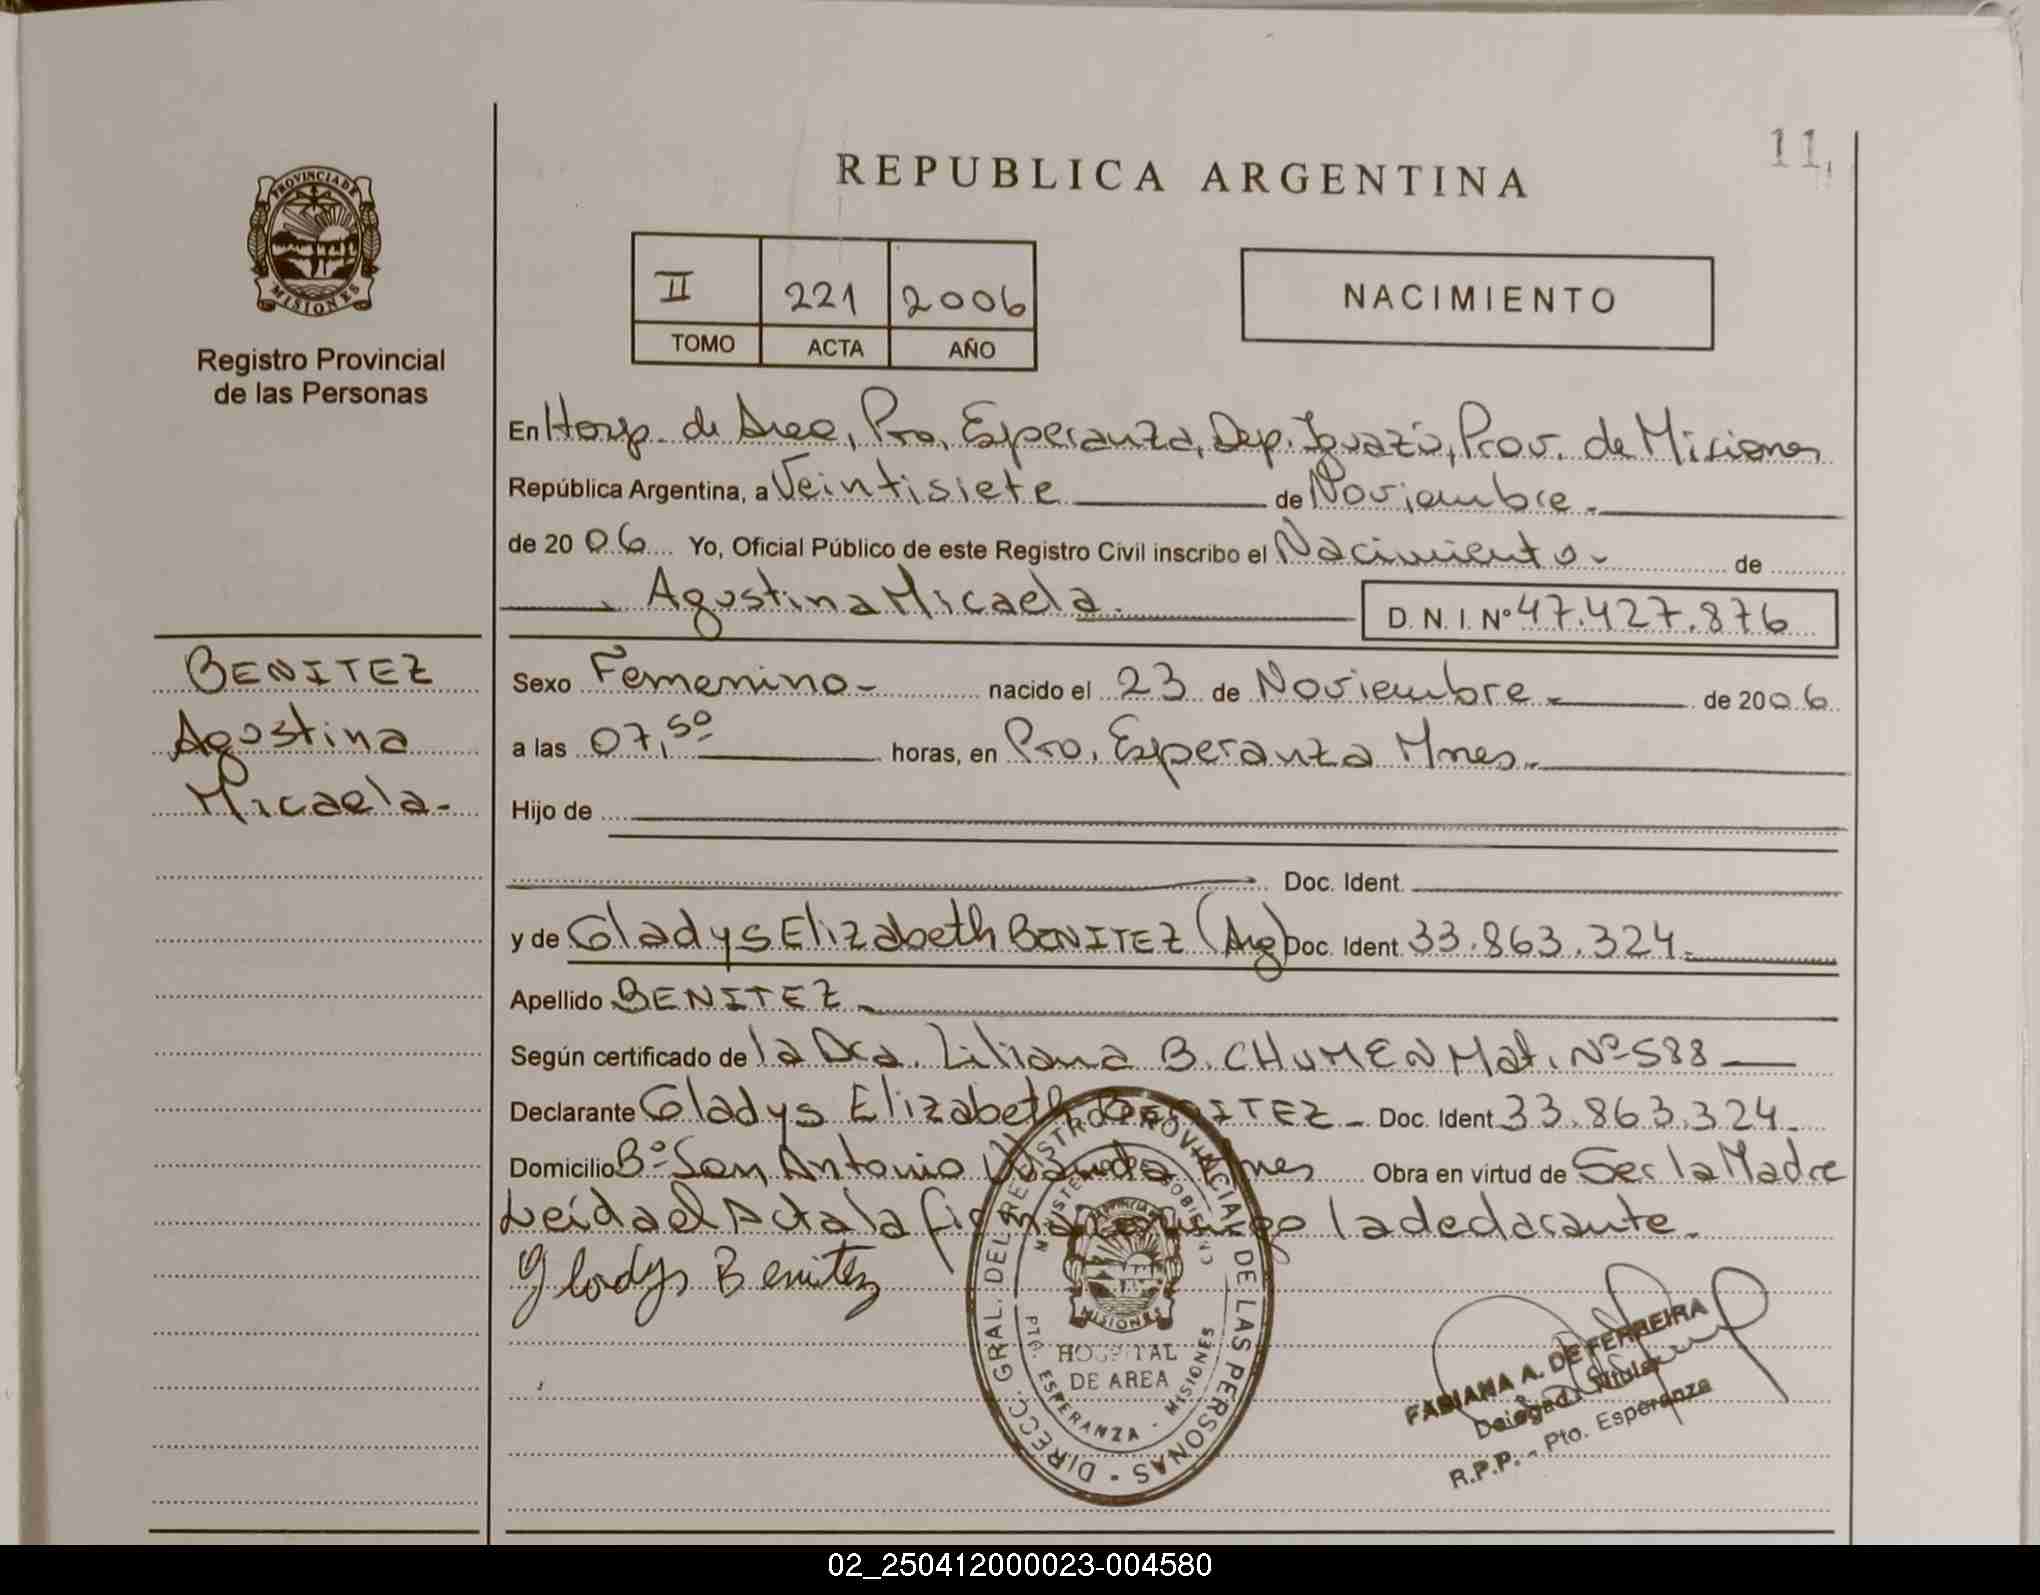 11
REPUBLICA ARGENTINA
PROVINCIA DE
MISIONES
Registro Provincial
de las Personas
II 221 2006
TOMO ACTA AÑO
NACIMIENTO
En Hosp. de Area, Pto. Esperanza, Dep. Iguazú, Prov. de Misiones
República Argentina, a Veintisiete de Noviembre.
de 2006 Yo, Oficial Público de este Registro Civil inscribo el Nacimiento- de
Agustina Micaela.
D. N. I. Nº 47.427.876
BENITEZ
Agostina
Micaela.-
Sexo Femenino- nacido el 23 de Noviembre de 2006
a las 07,50 horas, en Pto. Esperanza Mnes.
Hijo de
Doc. Ident.
y de Gladys Elizabeth BENITEZ (Arg) Doc. Ident. 33.863.324.
Apellido BENITEZ
Según certificado de la Dra. Liliana B. CHUMEN Mat. Nº 588
Declarante Gladys Elizabeth BENITEZ - Doc. Ident. 33.863.324.
Domicilio Bº San Antonio Wanda Mnes Obra en virtud de Ser la Madre
Leída el Acta la firma conmigo la declarante.
Gladys Benitez
DIRECC. GRAL. DEL REGISTRO PROVINCIAL DE LAS PERSONAS
MINISTERIO DE GOBIERNO
MISIONES
HOSPITAL
DE AREA
PTO. ESPERANZA - MISIONES
FABIANA A. DE FERREIRA
Delegada Titular
R.P.P. - Pto. Esperanza
02_250412000023-004580